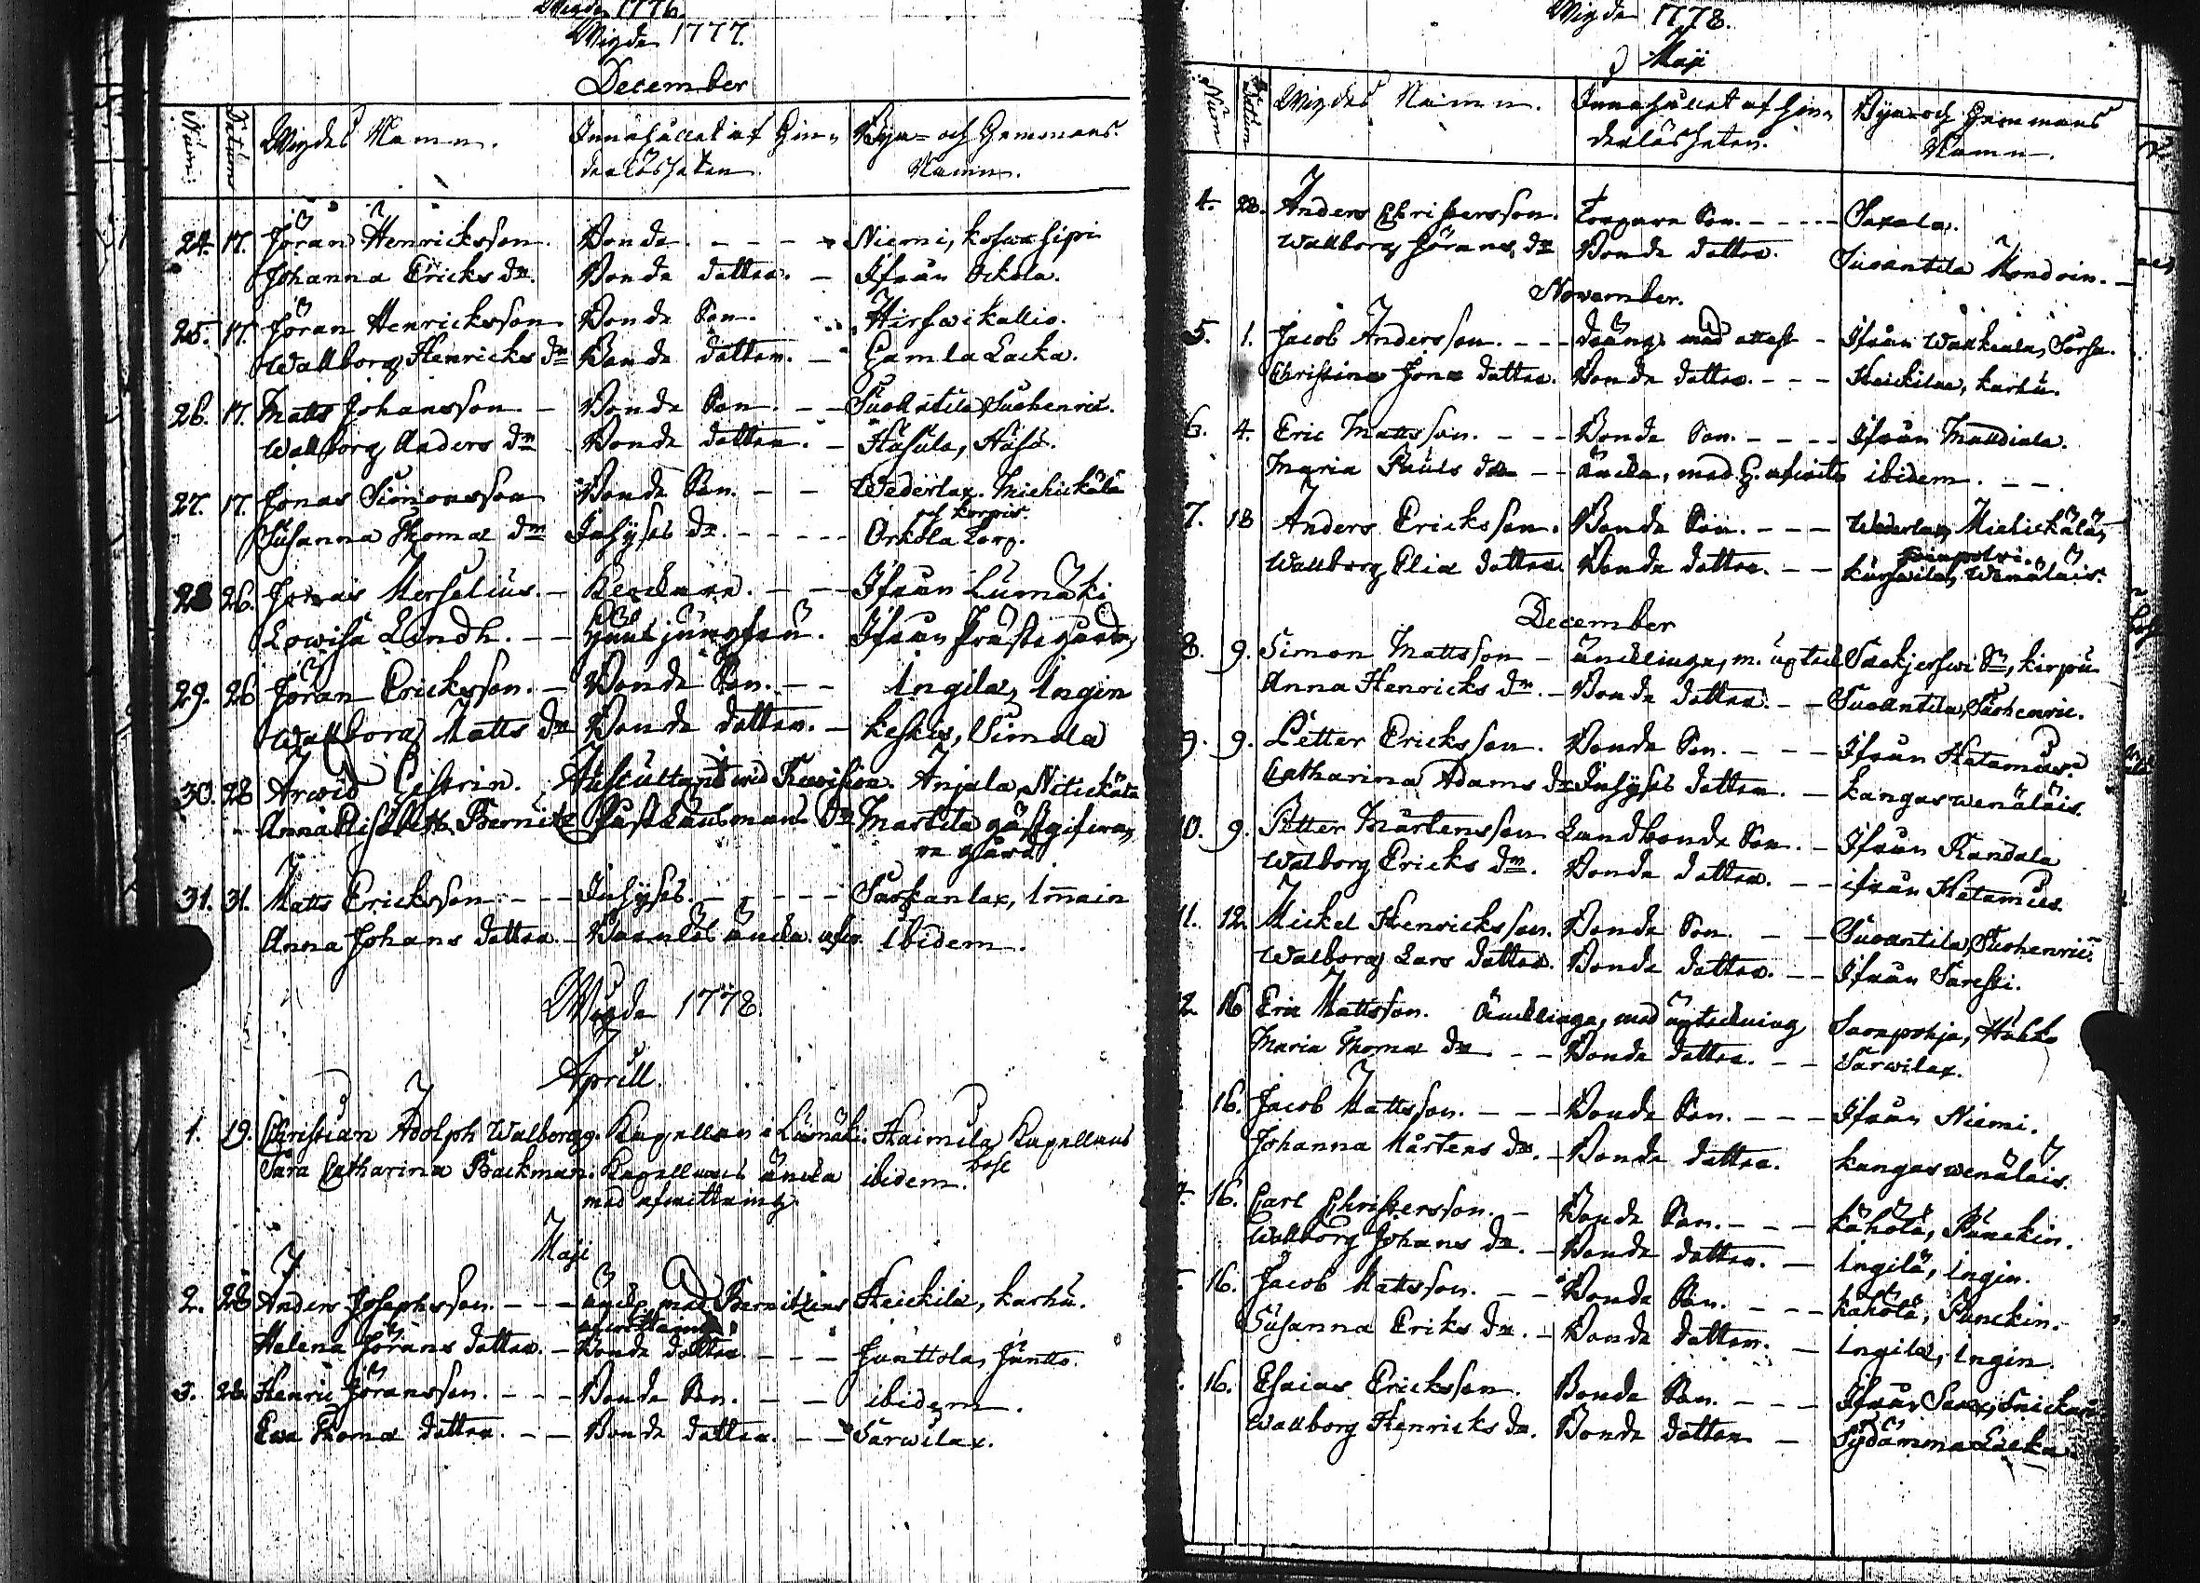 Wigde 1776.
Wigde 1777.
December
Num: Datum Wigdes Namn. Innehållet af Hin- Byn- och Hemmans
derlösheten Namn.
24. 17. Jöran Henricksson. Bonde - - - Niemi,
Johanna Ericks dr. Bonde dotter. - Ifrån Ockola.
25. 17. Jöran Henricksson Bonde Son. Hirfwikallio.
Wallborg Henricks dr Bonde dotter. - Gamla Lacka.
26. 17. Matts Johansson. - Bonde Son. - - Suoantila, Suohenric.
Wallborg Anders dr Bonde dotter. - Husula, Husu.
27. 17. Jonas Simonsson Bonde Son. - - Wederlax. Miehickälä
och Korpis.
Susanna Thomæ dr Inhyses dr. - - - - Orkola Torp.
28 26. Jonas Merselius. - - - Ifrån Lumäki
Lowisa Lindh. - - jungfru. Ifrån Prästegården,
29. 26 Jöran Ericksson. - Bonde Son. - - Ingila, Ingin
Wallborg Matts dr Bonde dotter. - Keskis, Simola
30. 28 Arwid Gestrin. Auscultant wid Revision. Anjala,
Anna Elisabeth Bernitz dr Martila gästgifwa-
re gård
31. 31. Matts Ericksson - - - Inhyses. - - - - Säkjanlax, Immain
Anna Johans dotter. - enka ibidem.
Wigde 1778.
Aprill.
1. 19. Christian Adolph Walborg. Kapellan i Lumäki. Haimila Kapellans
bohl
Sara Catharina Backman. Kapellans änka ibidem.
med afwittring
Maji
2. 28 Anders Josephsson. - - - med Bernitzens Heickila, Karhu.
afwittring
Helena Jörans dotter. - Bonde dotter - - - Junttola, Juntto.
3. 28. Henric Jöransson. - - - Bonde Son. - - ibidem.
Ewa Thomæ dotter. - - Bonde dotter. - - Särwilax.
Wigde 1778.
Maji
Num Datum Wigdes Namn. Innehållet af Hin- Byn- och Hemmans
derlösheten. Namn.
4. 28. Anders Christersson. Torpare Son. - - - - Saxala.
Wallborg Jörans dr Bonde dotter. Suoantila Mondoin. -
November.
5. 1. Jacob Andersson. - - - dräng med attest - Ifrån Walkeala,
Christina Jonæ dotter. Bonde dotter. - - - Heickilæ, Karhu.
6. 4. Eric Mattsson. - - - Bonde Son. - - - - Ifrån Mattdiala.
Maria Påuls dr - - Äncka, med ibidem. - -
7. 18 Anders Ericksson. Bonde Son. - - - Wederlax Miehickälä,
Wallborg Eliæ dotter. Bonde dotter. - - Wenäläis.
December
8. 9. Simon Mattsson - äncklinge, m. uptek Säkjerfwi Sn, Kirpu
Anna Henricks dr. - Bonde dotter. - - Suoantila, Suohenric.
9. 9. Petter Ericksson. Bonde Son. - - - Ifrån Hatamus.
Catharina Adams dr Inhyses dotter. - Kangas wenäläis.
10. 9. Petter Mårtensson Landbonde Son. - Ifrån Randala
Walborg Ericks dr. Bonde dotter. - - ifrån Hatamus.
11. 12. Mickel Henricksson. Bonde Son. - - Suoantila, Suohenric.
Walborg Lars dotter. Bonde dotter. - - Ifrån Saresti.
2. 16 Eric Mattsson. Äncklinge, med upteckning Saonpohja, Hukko
Maria Thomæ dr. - - Bonde dotter. - - Särwilax.
16. Jacob Mattsson. - - - Bonde Son. - - - Ifrån Niemi.
Johanna Mårtens dr. - Bonde dotter. Kangas wenäläis.
16. Carl Christersson. - Bonde Son. - - - Kähölä, Punckin.
Wallborg Johans dr. - Bonde dotter. - Ingilä, Ingin.
16. Jacob Mattsson. - - Bonde Son. - - - Kähölä, Punckin.
Susanna Eriks dr. - Bonde dotter. - Ingila, Ingin.
16. Esaias Ericksson. Bonde Son. - - - Ifrån
Wallborg Henricks dr. Bonde dotter - Sydänma Lacka.